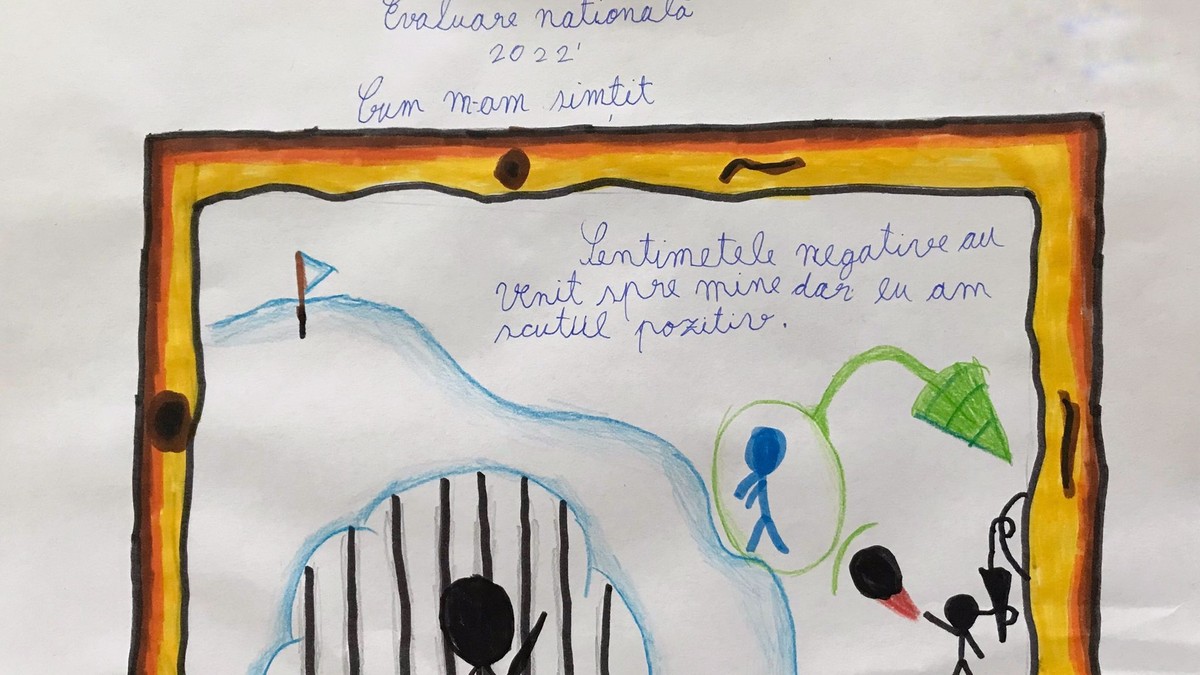 Evaluare natională
2022'
Cum m-am simțit
Sentimetele negative au
venit spre mine dar eu am
scutul pozitiv.